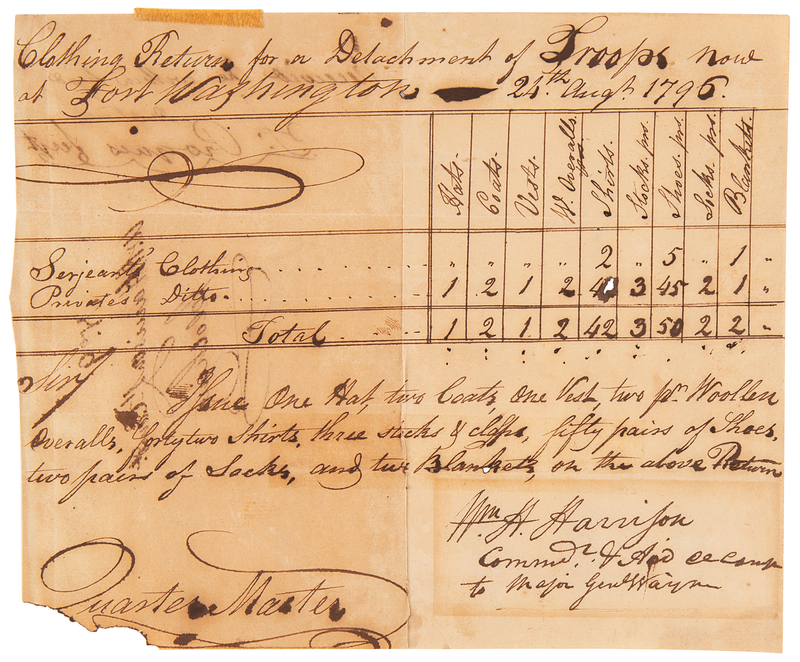 Clothing Return for a Detachment of Troops now
at Fort Washington 25th Augt. 1796.
Hats. Coats. Vests. W. Overalls. prs. Shirts. Stocks. prs. Shoes. prs. Socks. prs. Blankets.
Serjeants Clothing „ „ „ „ 2 „ 5 „ 1 „
Privates Ditto. 1 2 1 2 40 3 45 2 1 „
Total 1 2 1 2 42 3 50 2 2 „
Sir
Issue One Hat, two Coats, One Vest, two pr. Woollen
Overalls, fortytwo Shirts, three stocks & clasps, fifty pairs of Shoes,
two pairs of Socks, and two Blankets, on the above Return
Wm. H. Harrison
Commdr. & Aid de camp
to Major Genl Wayne
Quarter Master